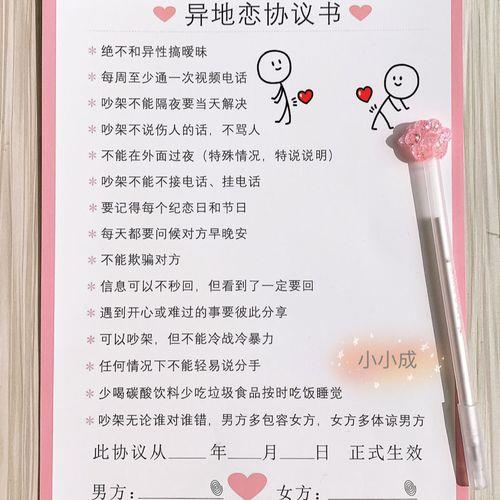 异地恋协议书
*绝不和异性搞暧昧
*每周至少通一次视频电话
*吵架不能隔夜要当天解决
*吵架不说伤人的话，不骂人
*不能在外面过夜（特殊情况，特说说明）
*吵架不能不接电话、挂电话
*要记得每个纪恋日和节日
*每天都要问候对方早晚安
*不能欺骗对方
*信息可以不秒回，但看到了一定要回
*遇到开心或难过的事要彼此分享
*可以吵架，但不能冷战冷暴力
小小成
*任何情况下不能轻易说分手
*少喝碳酸饮料少吃垃圾食品按时吃饭睡觉
*吵架无论谁对谁错，男方多包容女方，女方多体谅男方
此协议从____年____月____日 正式生效
男方：________ 女方：________